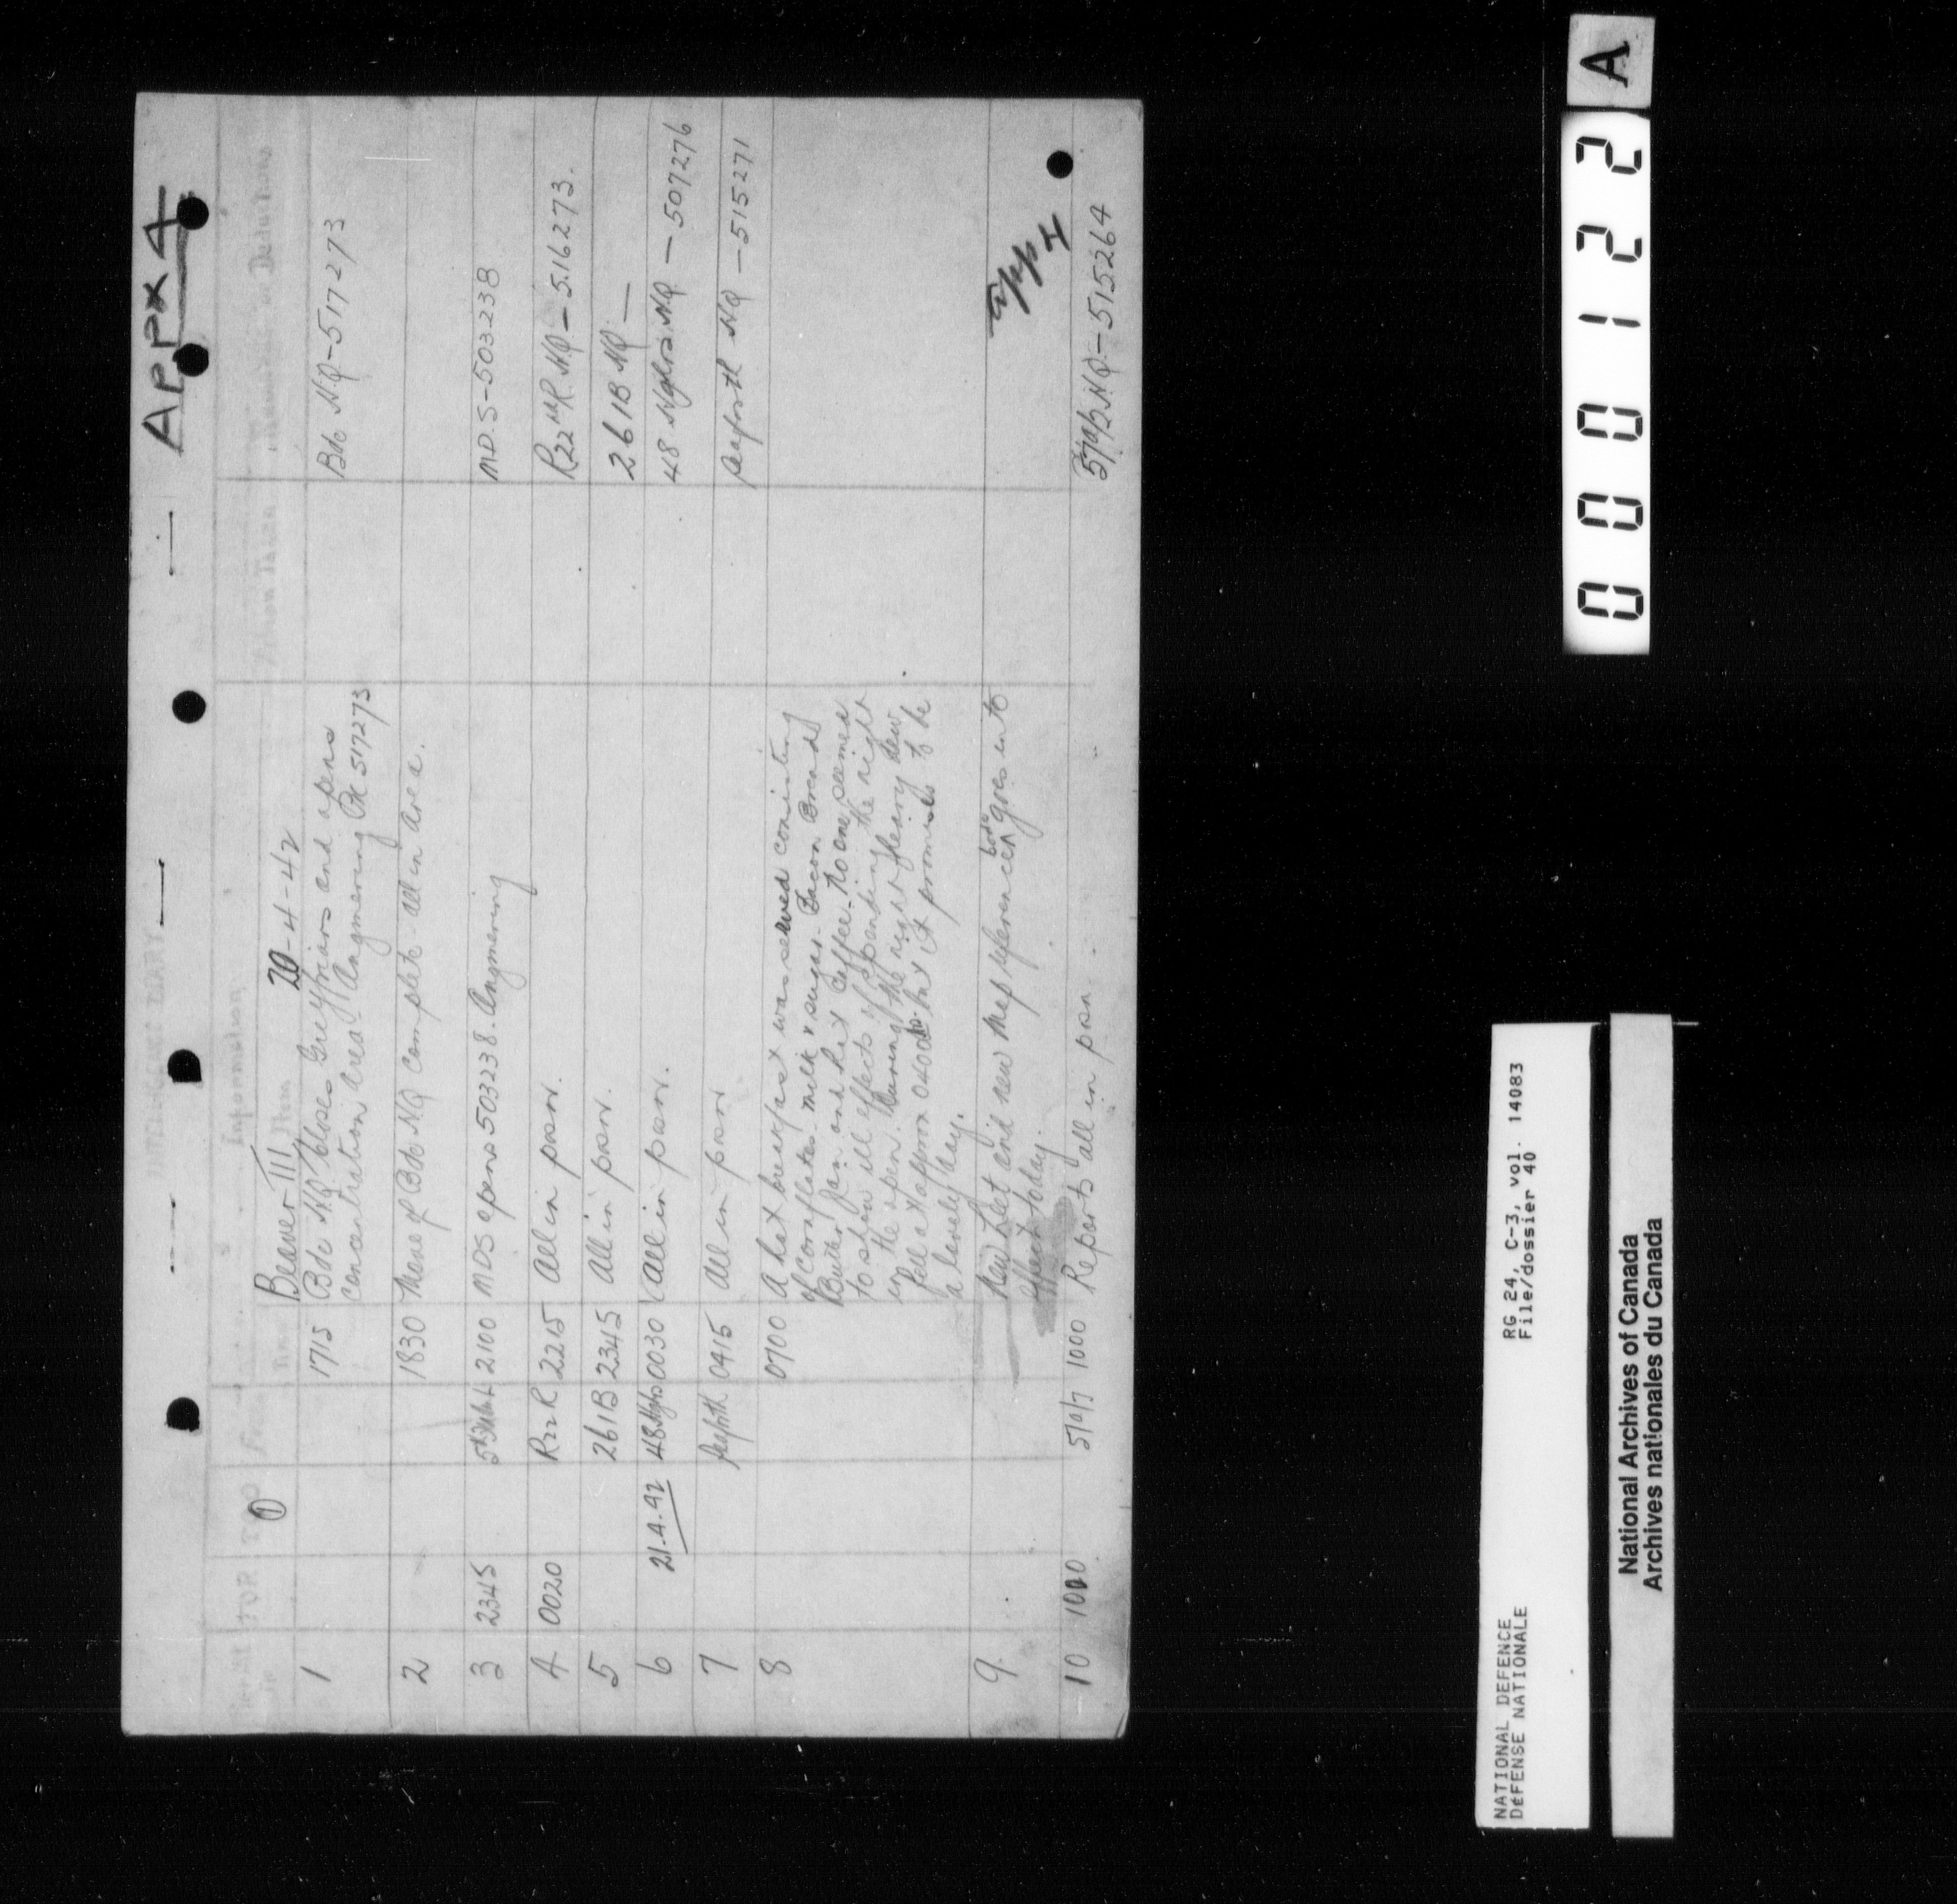 APPX 4
INTELLIGENCE DIARY
Information
Serial TOR TOO From Time Item Action Taken
Beaver III 20-4-42
1 1715 Bde H.Q closes Greyfriars and opens Bde H.Q - 517273
Concentration Area - Angmering Pk 517273
2 1830 Move of Bde H.Q complete - all in Area.
3 2345 2100 MDS opens 503238. Angmering M.D.S - 503238
4 0020 R22R 2215 All in posn. R22eR H.Q - 516273.
5 261B 2345 All in posn. 261B HQ —
6 21.4.42 48 Hghrs 0030 All in posn. 48 Hghrs H.Q — 507276
7 Seaforth 0415 All in posn Seaforth HQ - 515271
8 0700 A hot breakfast was served consisting
of cornflakes - milk & sugar - Bacon Bread &
Butter Jam and hot coffee. No one seemed
to show ill effects of spending the night
in the open. During the night heavy dew
fell at approx 0400 hrs. but it promises to be
a lovely day.
9. New Let and new map reference code goes into
effect today.
App I
10 1000 1000 Reports all in posn. H.Q. - 515264
000122 A
NATIONAL DEFENCE RG 24, C-3, vol. 14083
DéFENSE NATIONALE File/dossier 40
National Archives of Canada
Archives nationales du Canada